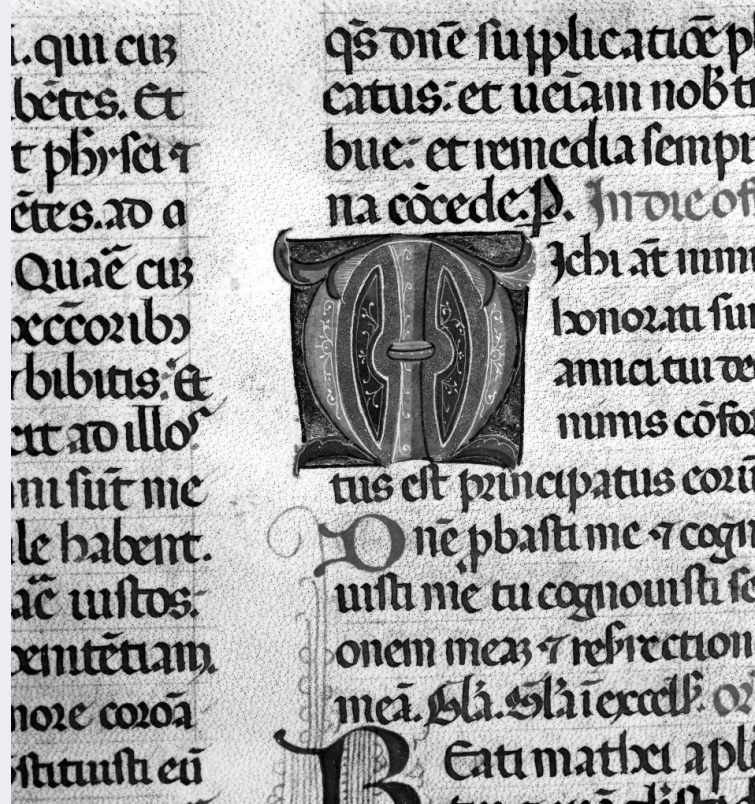 . qui cuȝ
bētes. Et
t phy·sei ⁊
ētes. ad a
. Quāē cuȝ
bibitis: Et
cit ad illos
ni sūt me
le habent.
āc iustos:
penitētiam.
nore coroā
stituisti eū
qs̄ dnē supplicatiōe p
catus: et ueīam nob̄ t
bue: et remedia sempi
na cōcede. P. In die of
Ichi āt nimi
honorati sūt
amici tui de
nimis cōfor
tus est principatus eorū
Dnē pbasti me ⁊ cogn
uisti mē tu cognouisti se
onem meaȝ ⁊ resurrection
meā. Gla. Gla ī excels̄. Or
Beati mathei apl